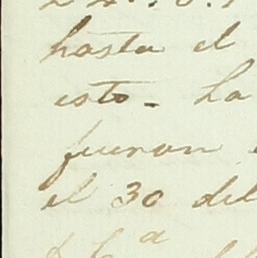 hasta el
esto. La
fueron
el 30 del